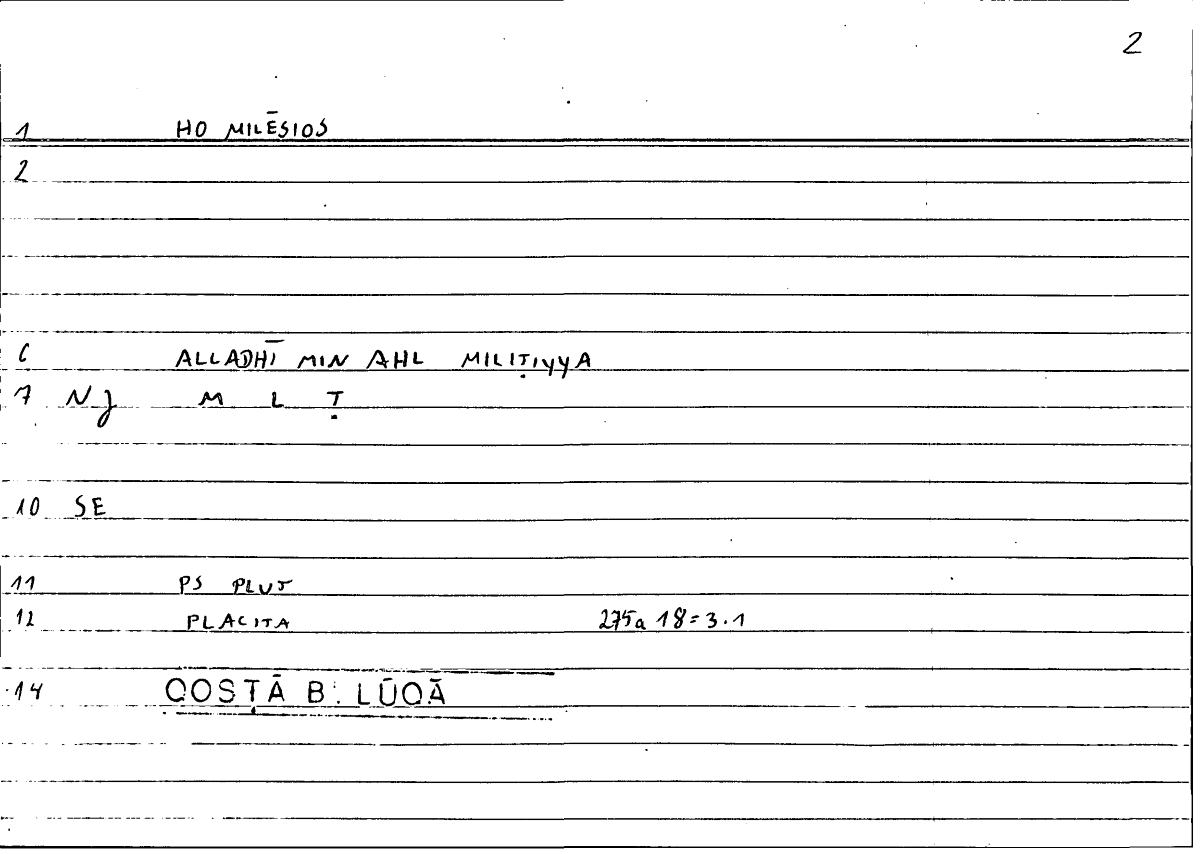 2
1 HO MILĒSIOS
2
6 ALLADHĪ MIN AHL MILIṬIYYA
7 NJ M L Ṭ
10 SE
11 PS PLUT
12 PLACITA 275a 18 = 3.1
14 QOSṬĀ B. LŪQĀ